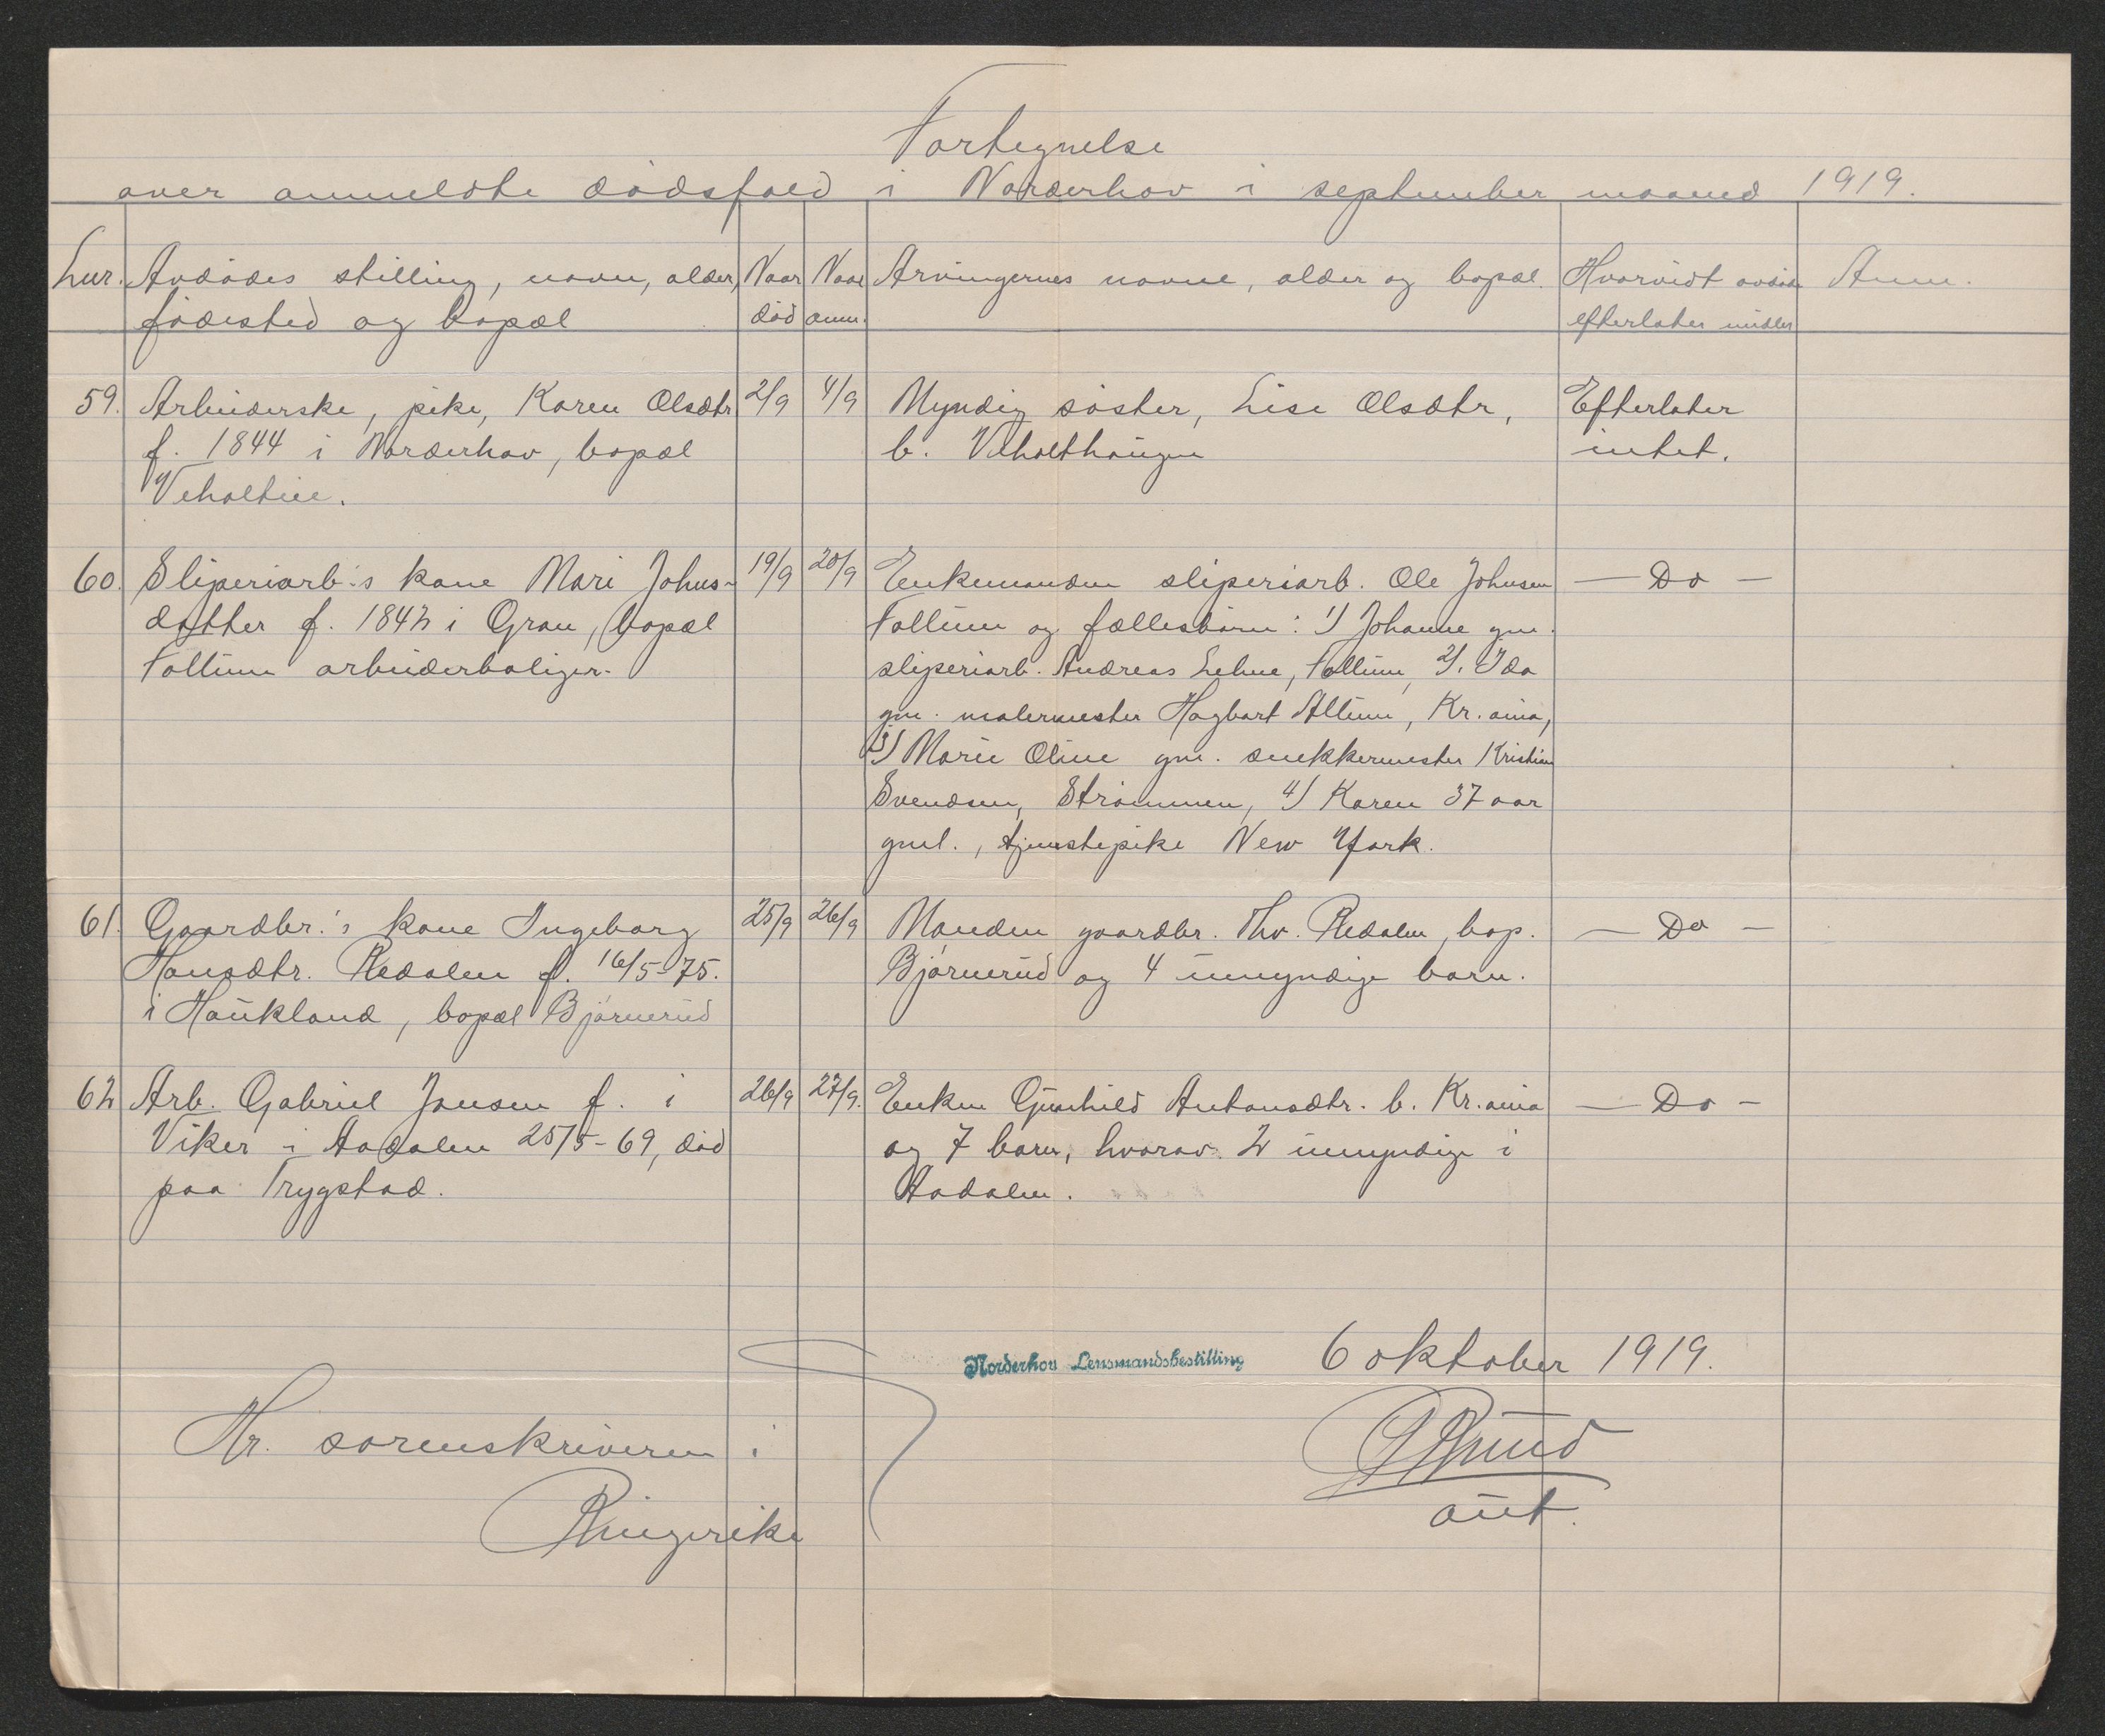 Fortegnelse
over anmeldte dødsfald i Norderhov i september maaned 1919.
Lnr. Avdødes stilling, navn, alder, fødested og bopæl
Naar død
Naar anm.
Arvingernes navne, alder og bopæl.
Hvorvidt avdøde efterlater midler
Anm.
59. Arbeiderske, pike, Karen Olsdtr
f. 1844 i Norderhov, bopæl
Veholteie.
2/9
4/9
Myndig søster, Lise Olsdtr,
b. Veholthaugen
Efterlater
intet.
60. Sliperiarb.'s kone Mari Johns-
datter f. 1842 i Gran, bopæl
Follum arbeiderboliger.
19/9
20/9
Enkemanden sliperiarb. Ole Johnsen
Follum og fællesbarn: 1) Johanne gm.
sliperiarb. Andreas Lehne, Follum, 2). Ida
gm. malermester Hagbart Altum, Kr.ania,
3) Marie Oline gm. snekkermester Kristian
Svendsen, Strømmen, 4) Karen 37 aar
gml., tjenestepike New York.
— Do —
61. Gaardbr.'s kone Ingeborg
Hansdtr. Redalen f. 16/5-75.
i Haukland, bopæl Bjørnerud
25/9
26/9
Manden gaardbr. Thv. Redalen, bop.
Bjørnerud og 4 umyndige barn.
— Do —
62 Arb. Gabriel Jonsen f. i
Viker i Aadalen 25/5-69, død
paa Trygstad.
26/9
27/9.
Enken Gunhild Antonsdtr. b. Kr.ania
og 7 barn, hvorav 2 umyndige i
Aadalen.
— Do —
Norderhov Lensmandsbestilling 6 oktober 1919.
Hr. sorenskriveren i
Ringerike
aut.